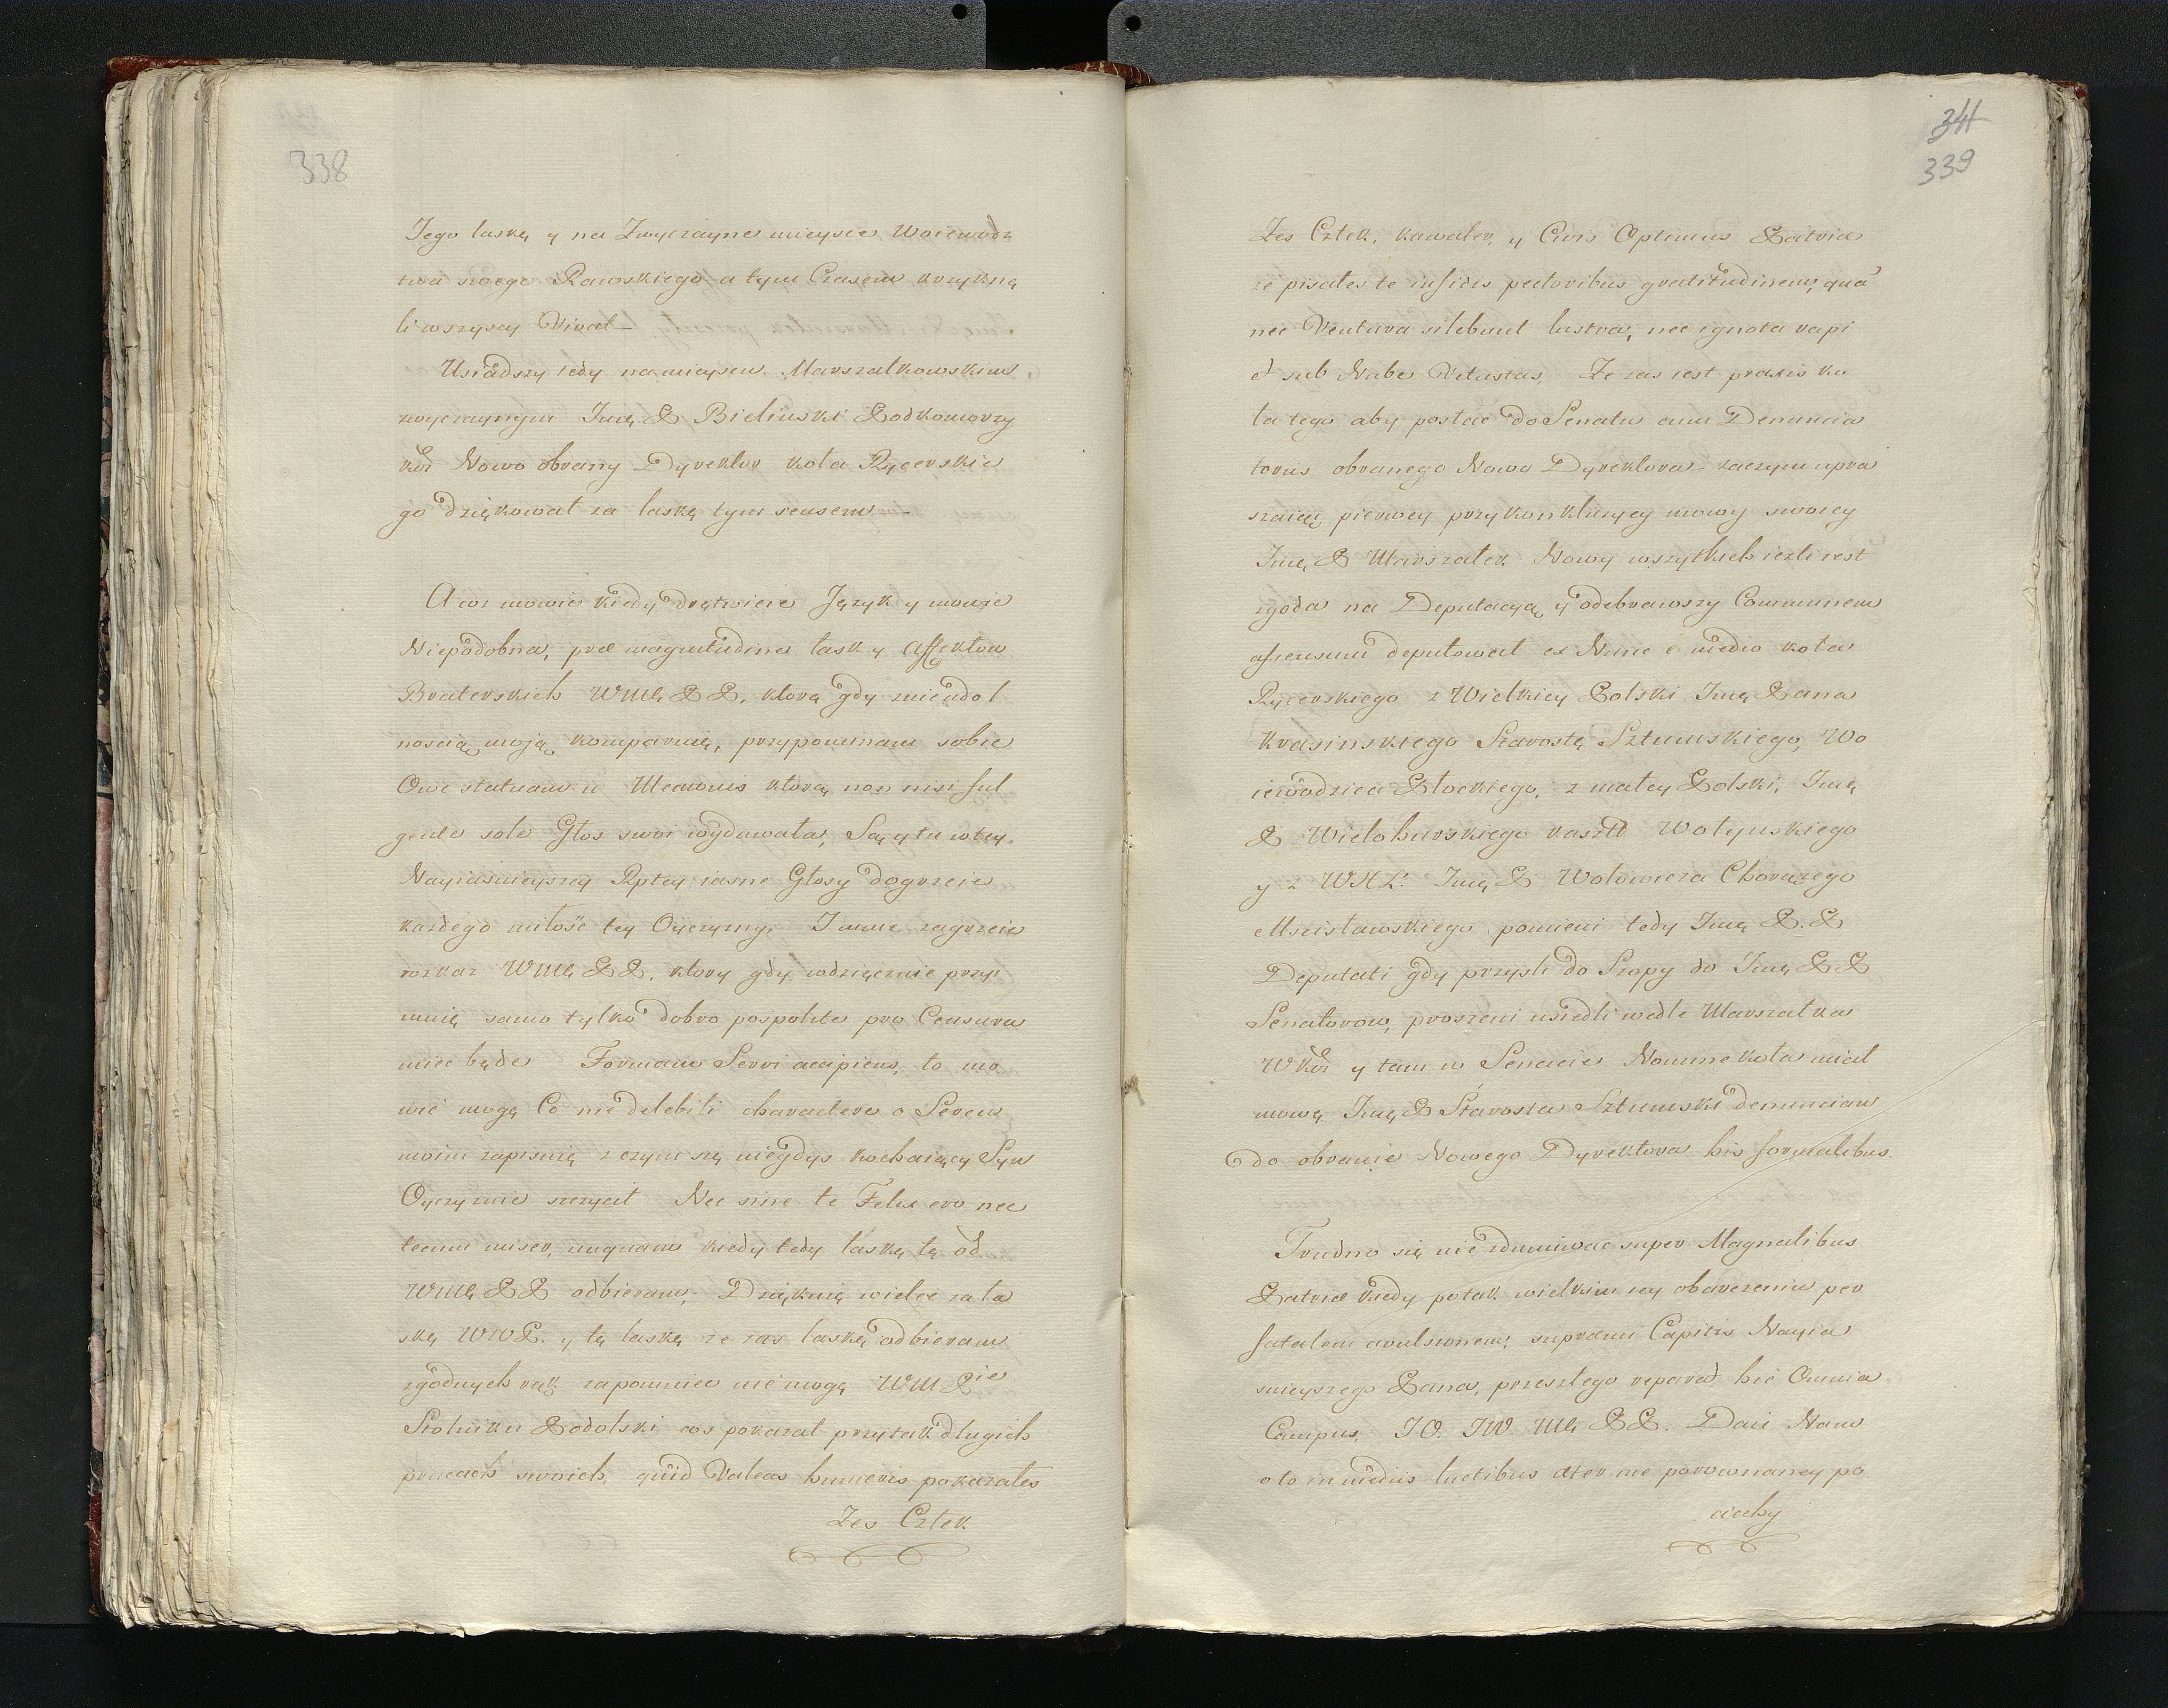 338
Jego laskę y na Zwyczayne mieysce Woiewodz
twa swego Rawskiego a tym Czasem krzyknę
li wszyscy Vivat
Usiadszy tedy na mieyscu Marszałkowskim
zwyczaynym Jmę P Bielinski Podkomorzy
kor Nowo obrany Dyrektor koła Rycerskie
go dziękował za laskę tym sensem
A coz mowie kiedy drętwieie Język y mowic
Niepodobna, præ magnitudine łask y affektow
Braterskich WMę PP. ktorą gdy z nieudol
noscią moją komparuię, przypominam sobie
Owe statuam Memonis ktorą non nisi ful
gente sole Głos swoi wydawała, Są y tu w tey
Nayiasnieyszey Rptey iasne Głosy dogrzeie
kazdego miłosc tey Oyczyzny, I mnie zagrzeie
rozkaz WMę PP. ktory gdy wdzięcznie przyi
muię samo tylko dobro pospolite pro Censura
miec będe Formam Servi accipiens, to mo
wić mogę Co nie delebili charactere o Sercu
moim zapisuię z czym się niegdys kochaiący Syn
Oyczyznie szczycił Nec sine te Felix ero nec
tecum miser, unquam kiedy tedy laskę tę od
WMę PP odbieram, Dziękuię wielce za ła
skę WWP. y tę laskę ze zas laskę odbieram
zgodnych rąk zapomniec nie mogę WM Pie
Stolniku Podolski cos pokazał przy tak długich
pracach swoich, quid Valeas humeris pokazałes
Zes Człek
341
339
Zes Człek, kawaler, y Civis Optimus Patriæ
ze pisałes te in fidis pectoribus gratitudinem, qua
nec Ventura silebunt lustra, nec ignota rapi
et sub Nube Vetustas, Ze zas iest praxis ko
ła tego aby posłac do Senatu cum Denuncia
torus obranego Nowo Dyrektora zaczym upra
szaiąc pierwey przy konkluzyey mowy swoiey
Jmę P Marszałek Nowy wszytkich iezli iest
zgoda na Deputacyą y odebrawszy Communem
assensum deputował ex Nunc e medio koła
Rycerskiego z Wielkiey Polski Jmę Pana
Krasinskiego Starostę Sztumskiego, Wo
iewodzica Płockiego, z małey Polski, Jmę
P Wielohurskiego kaszt Wołynskiego
y z WXL. Jmę P Wołowicza Chorążego
Mscisławskiego pomieni tedy Jmę P.P
Deputati gdy przyśli do Szopy do Jmę PP
Senatorow, proszeni usiedli wedle Marszałka
W kor y tam w Senacie Nomine koła miał
mowę Jmę P Starosta Sztumski denunciam
do obranie Nowego Dyrektora his formalibus
Trudno się nie zdumiwac super Magnalibus
Patriæ kiedy po tak wielkim iey obarczeniu per
fatalem avulsionem, supremi Capitis Nayia
snieyszego Pana, przeszłego reparat hic Omnia
Campus, JO. JW. Mę PP. Dai Nam
o to in mediis luctibus ater nie porownaney po
ciechy